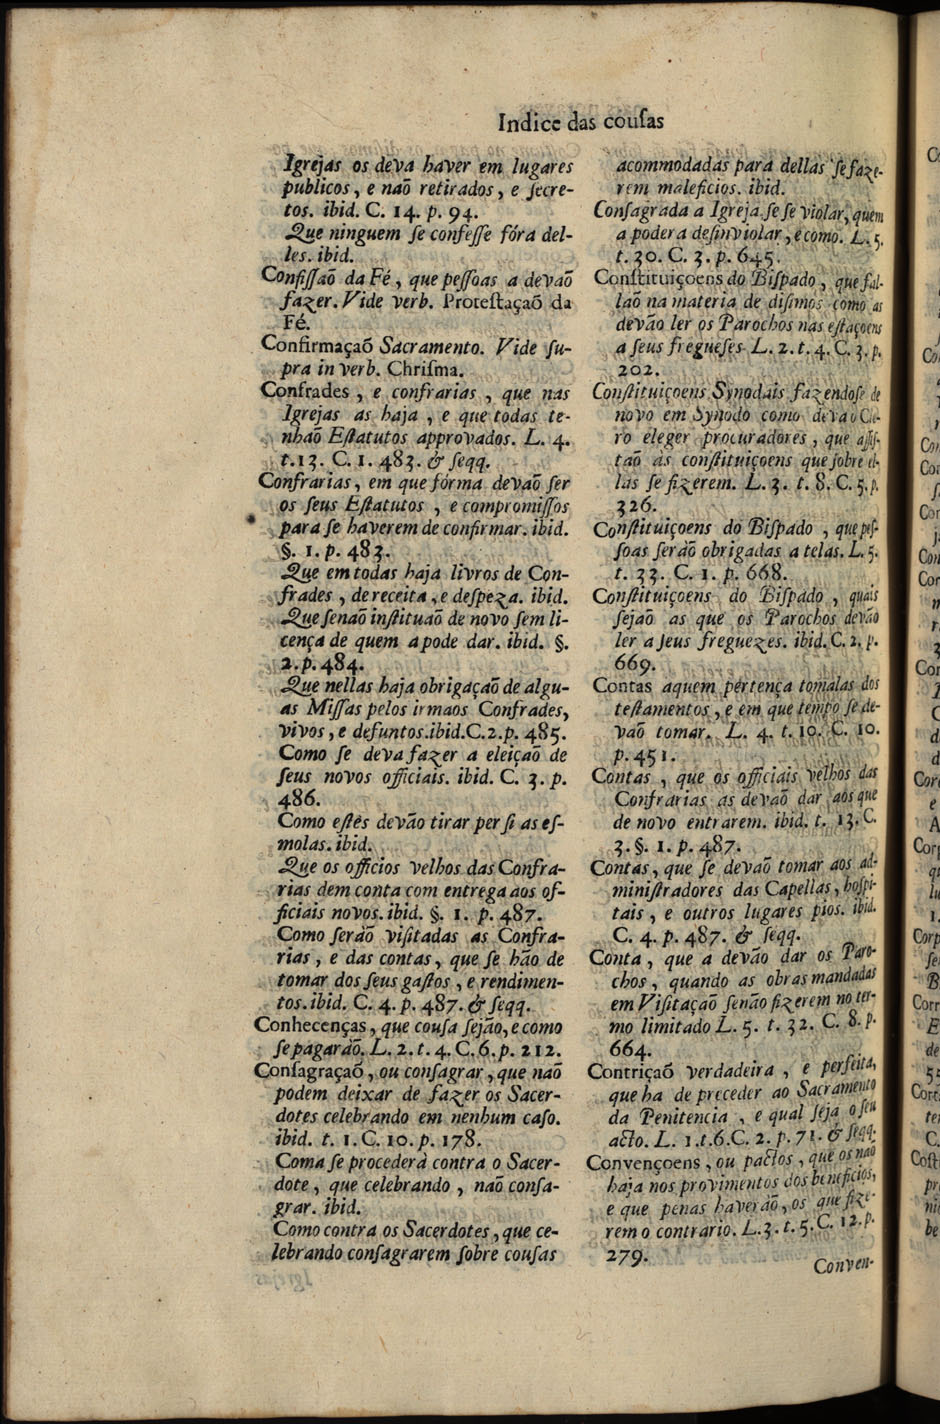 Indice das couſas
Igrejas os deva haver em lugares
publicos, e naõ retirados, e ſecre-
tos. ibid. C. 14. p. 94.
Que ninguem ſe confeſſe fóra del-
les. ibid.
Confiſſaõ da Fé, que peſſoas a devaõ
fazer. Vide verb. Proteſtaçaõ da
Fé.
Confirmaçaõ Sacramento. Vide ſu-
pra in verb. Chriſma.
Confrades, e confrarias, que nas
Igrejas as haja, e que todas te-
nhaõ Eſtatutos approvados. L. 4.
t. 13. C. 1. 483. & ſeqq.
Confrarias, em que fórma devaõ ſer
os ſeus Eſtatutos, e compromiſſos
para ſe haverem de confirmar. ibid.
§. 1. p. 483.
Que em todas haja livros de Con-
frades, de receita, e deſpeza. ibid.
Que ſenaõ inſtituaõ de novo ſem li-
cença de quem a pode dar. ibid. §.
2. p. 484.
Que nellas haja obrigaçaõ de algu-
as Miſſas pelos irmaos Confrades,
vivos, e defuntos. ibid. C. 2. p. 485.
Como ſe deva fazer a eleiçaõ de
ſeus novos officiais. ibid. C. 3. p.
486.
Como eſtes devaõ tirar per ſi as eſ-
molas. ibid.
Que os officios velhos das Confra-
rias dem conta com entrega aos of-
ficiais novos. ibid. §. 1. p. 487.
Como ſeráõ viſitadas as Confra-
rias, e das contas, que ſe haõ de
tomar dos ſeus gaſtos, e rendimen-
tos. ibid. C. 4. p. 487. & ſeqq.
Conhecenças, que couſa ſejão, e como
ſe pagaráõ. L. 2. t. 4. C. 6. p. 212.
Conſagraçaõ, ou conſagrar, que naõ
podem deixar de fazer os Sacer-
dotes celebrando em nenhum caſo.
ibid. t. 1. C. 10. p. 178.
Coma ſe procederà contra o Sacer-
dote, que celebrando, naõ conſa-
grar. ibid.
Como contra os Sacerdotes, que ce-
lebrando conſagrarem ſobre couſas
acommodadas para dellas ſe faze-
rem maleficios. ibid.
Conſagrada a Igreja. ſe ſe violar, quem
a poderá deſinviolar, e como. L. 5.
t. 30. C. 3. p. 645.
Conſtituiçoens do Biſpado, que fal-
laõ na materia de diſimos como as
devão ler os Parochos nas eſtaçoens
a ſeus fregueſes. L. 2. t. 4. C. 3. p.
202.
Conſtituiçoens Synodais fazendoſe de
novo em Synodo como devaõ Cle-
ro eleger procuradores, que aſſiſ-
taõ ás conſtituiçoens que ſobre el-
las ſe fizerem. L. 3. t. 8. C. 5. p.
326.
Conſtituiçoens do Biſpado, que peſ-
ſoas ſeráõ obrigadas a telas. L. 5.
t. 33. C. 1. p. 668.
Conſtituiçoens do Biſpado, quais
ſejaõ as que os Parochos devão
ler a ſeus freguezes. ibid. C. 2. p.
669.
Contas aquem pertença tomalas dos
teſtamentos, e em que tempo ſe de-
vaõ tomar. L. 4. t. 10. C. 10.
p. 451.
Contas, que os officiais velhos das
Confrarias as devaõ dar aos que
de novo entrarem. ibid. t. 13. C.
3. §. 1. p. 487.
Contas, que ſe devaõ tomar aos ad-
miniſtradores das Capellas, hoſpi-
tais, e outros lugares pios. ibid.
C. 4. p. 487. & ſeqq.
Conta, que a devão dar os Paro-
chos, quando as obras mandadas
em Viſitaçaõ ſenão fizerem no ter-
mo limitado L. 5. t. 32. C. 8. p.
664.
Contriçaõ verdadeira, e perfeita,
que ha de preceder ao Sacramento
da Penitencia, e qual ſeja o ſeu
acto. L. 1. t. 6. C. 2. p. 71. & ſeqq.
Convençoens, ou pactos, que os naõ
haja nos provimentos dos beneficios,
e que penas haveráõ, os que fize-
rem o contrario. L. 3. t. 5. C. 12. p.
279.
Conven-